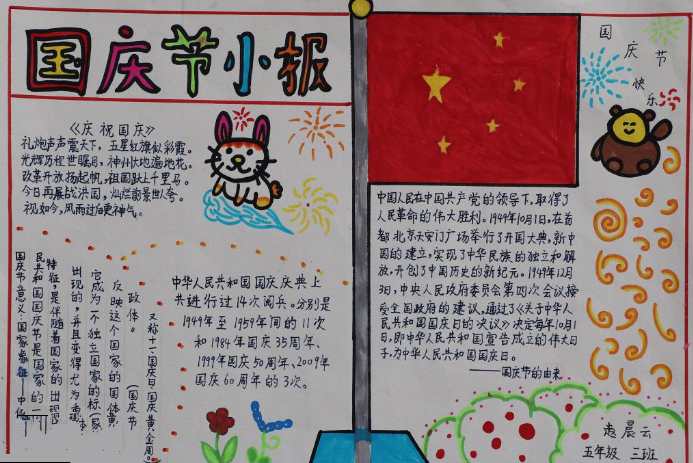 国庆节小报
《庆祝国庆》
礼炮声声震天下，五星红旗似彩霞。
光辉历程世瞩目，神州大地遍地花。
改革开放扬起帆，祖国跃上千里马。
今日再展战洪图，灿烂前景世人夸。
视如今，风雨过后更神气。
国庆节意义：国家象征
民共和国国庆节是国家的一
特征，是伴随着国家的出现
出现的，并且变得尤为重
它成为一个独立国家的标
反映这个国家的国体
政体。
（国庆节
又称十一、国庆日、国庆黄金周。
中华人民共和国国庆庆典上
共进行过14次阅兵。分别是
1949年至1959年间的11次
和1984年国庆35周年、
1999年国庆50周年、2009年
国庆60周年的3次。
国庆节快乐
中国人民在中国共产党的领导下，取得了
人民革命的伟大胜利。1949年10月1日，在首
都北京天安门广场举行了开国大典，新中
国的建立，实现了中华民族的独立和解
放，开创了中国历史的新纪元。1949年12月
3日，中央人民政府委员会第四次会议接
受全国政府的建议，通过了《关于中华人
民共和国国庆日的决议》决定每年10月1
日，即中华人民共和国宣告成立的伟大日
子，为中华人民共和国国庆日。
——国庆节的由来
赵晨云
五年级 三班